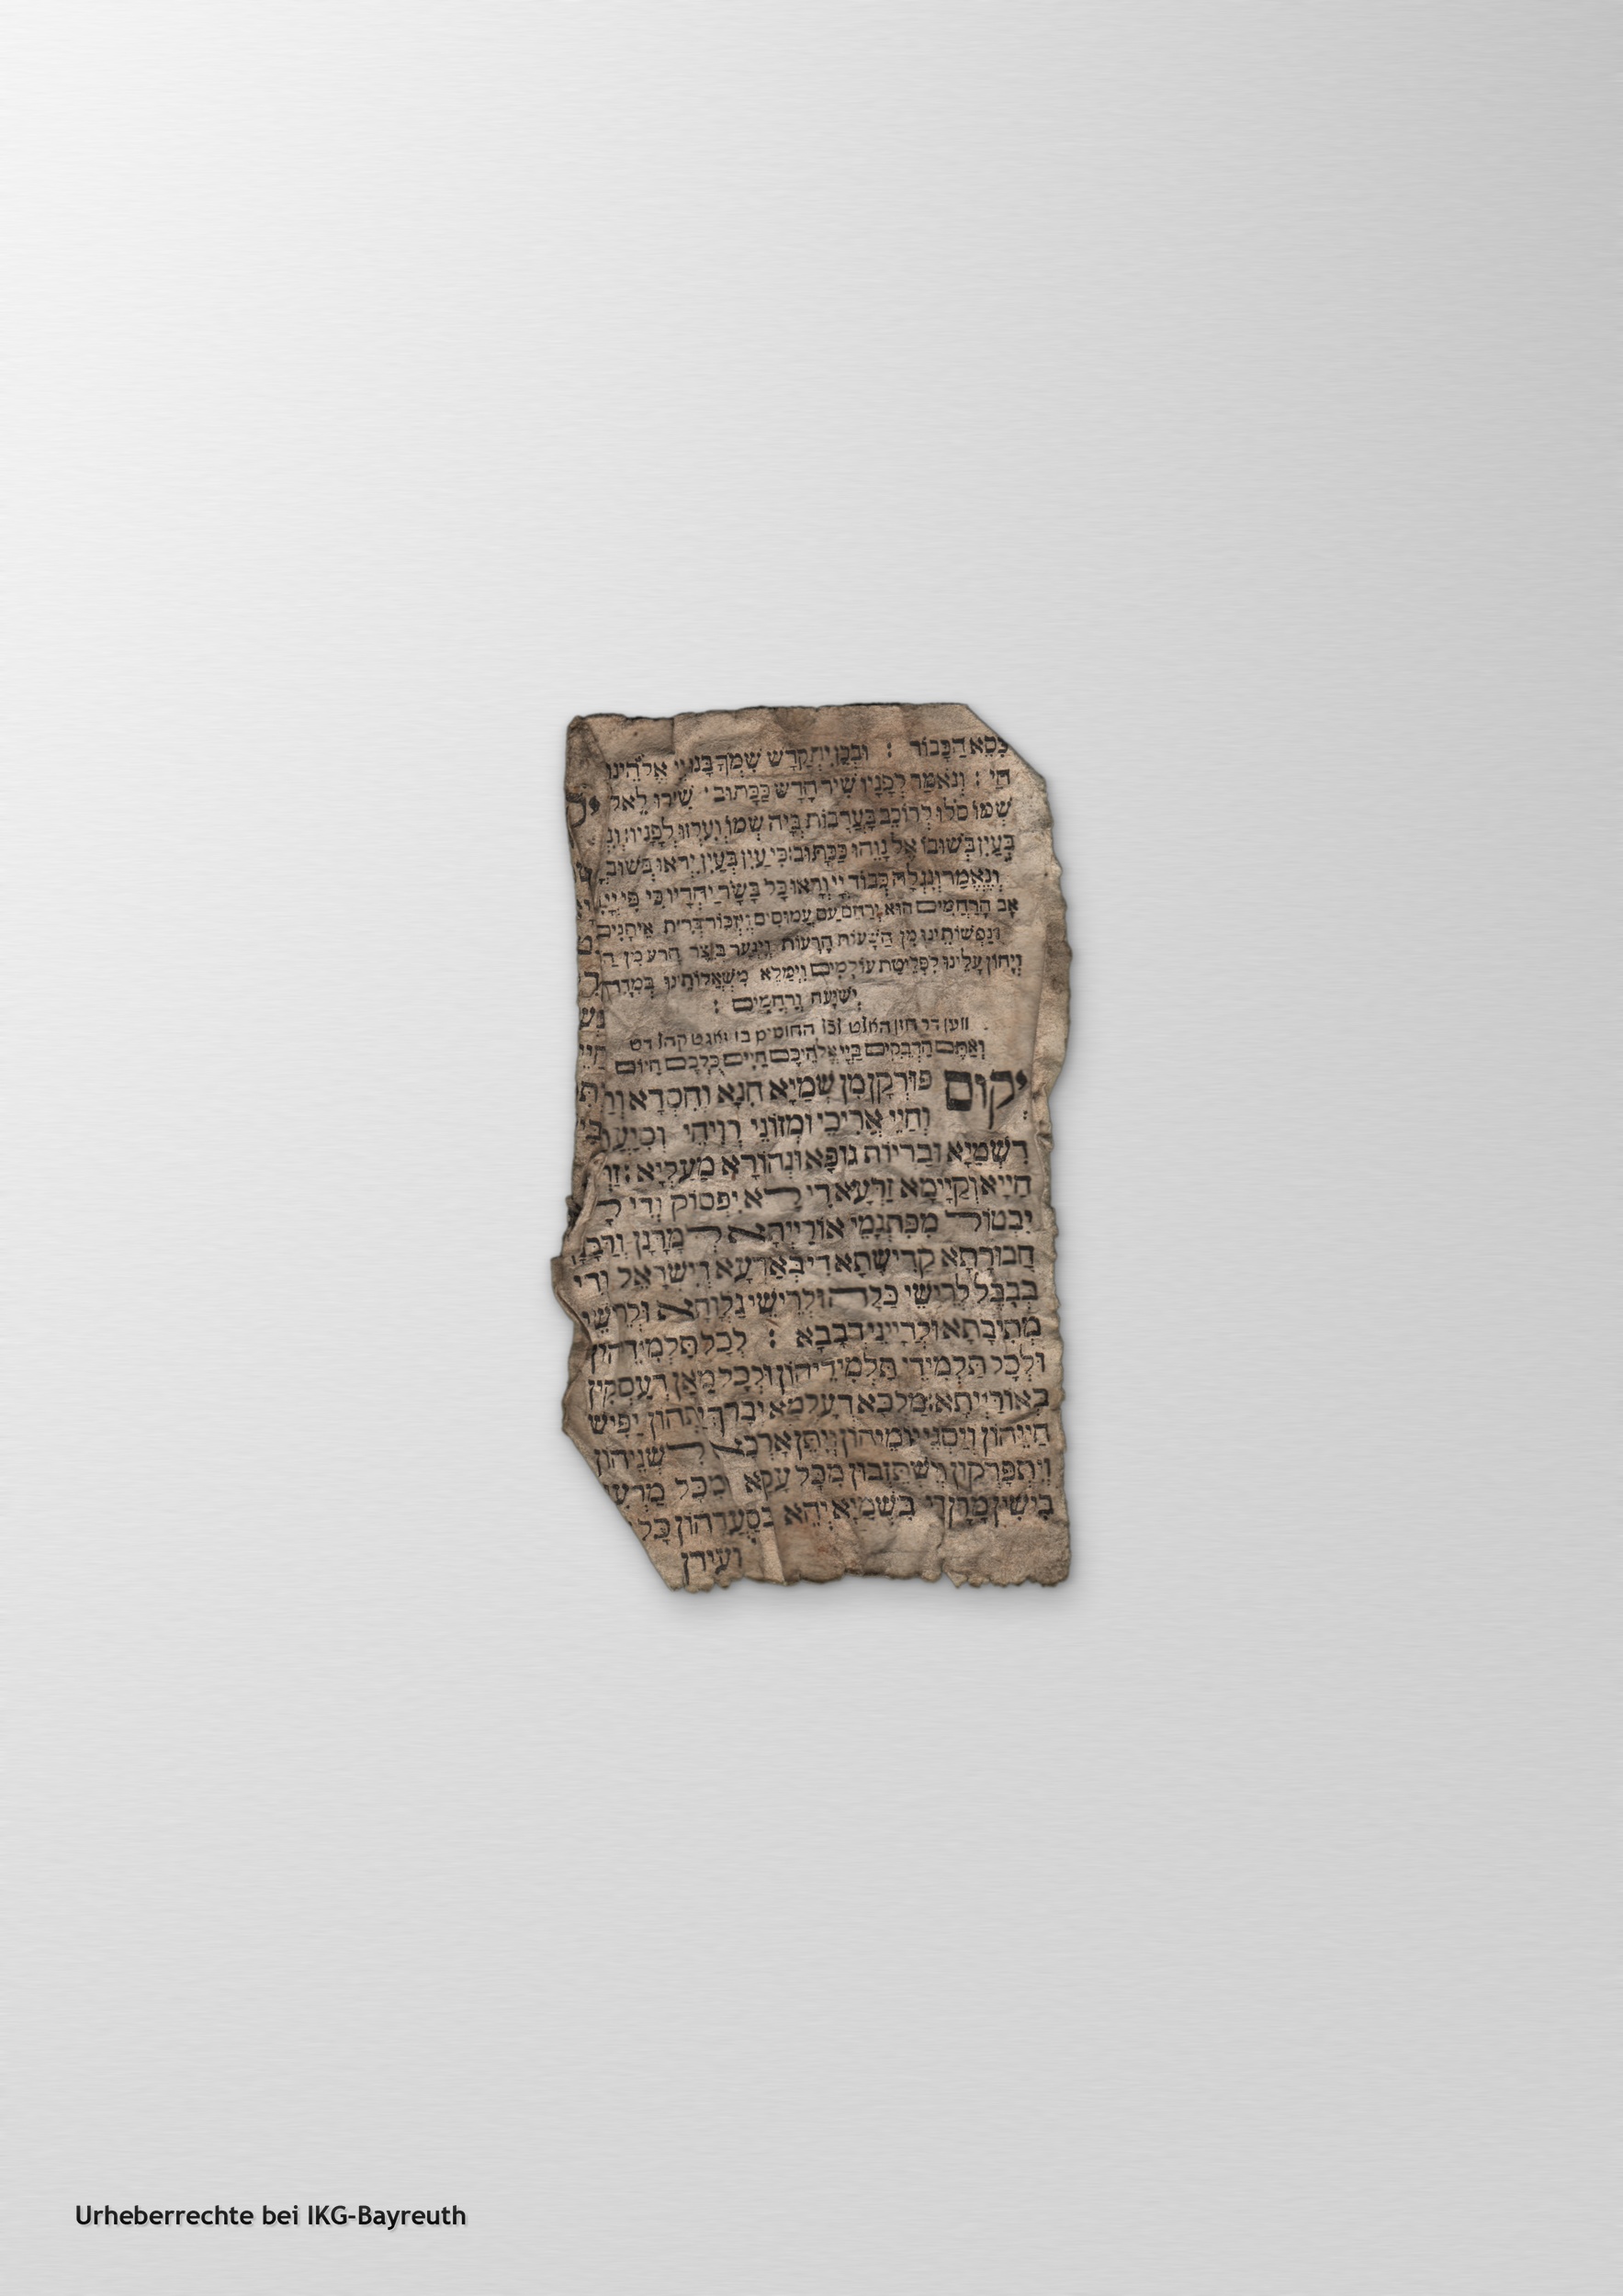 כִּסֵא הַכָּבוֹד : וּבְכֵן יִתְקַדַשׁ שִׁמְךָ בָּנוּ יְיָ אֱלֹהֵינוּ
חַי : וְנֹאמַר לְפָנָיו שִׁיר חָדָשׁ כַּכָּתוּב שִׁירוּ לֵאל
שְׁמוֹ סֹלוּ לָרוֹכֵב בָּעֲרָבוֹת בְּיָה שְׁמוֹ וְעִלְזוּ לְפָנָיו :
בְּעַיִן בְּשׁוּבוֹ אֶל נָוֵהוּ כַּכָּתוּב : כִּי עַיִן בְּעַיִן יִרְאוּ בְּשׁוּב
וְנֶאֱמַר וְנִגְלָה כְּבוֹד יְיָ וְרָאוּ כָל בָּשָׂר יַחְדָיו כִּי פִּי יְיָ
אָב הָרַחֲמִים הוּא יְרַחֵם עַם עֲמוּסִים וְיִזְכּוֹר בְּרִית אֵיתָנִים
וְנַפְשׁוֹתֵינוּ מִן הַשָּׁעוֹת הָרָעוֹת וְיִגְעַר בְּיֵצֶר הָרַע מִן
וְיָחוֹן עָלֵינוּ לִפְלֵיטַת עוֹלָמִים וִימַלֵא מִשְׁאֲלוֹתֵינוּ בְּמִדָה
יְשׁוּעָה וְרַחֲמִים :
ווען דר חזן
וְאַתֶּם הַדְּבֵקִים בַּיְיָ אֱלֹהֵיכֶם חַיִּים כֻּלְּכֶם הַיּוֹם
יְקוּם פּוּרְקָן מִן שְׁמַיָא חִנָא וְחִסְדָא
וְחַיֵי אֲרִיכֵי וּמְזוֹנֵי רְוִיחֵי וְסִיַעְתָּא
דִשְׁמַיָא וּבַרְיוּת גוּפָא וּנְהוֹרָא מַעַלְיָא :
חַיָיא וְקַיָימָא זַרְעָא דִי לָא יִפְסוֹק וְדִי לָא
יִבְטוֹל מִפִּתְגָמֵי אוֹרַיְיתָא לְמָרָנָן וְרַבָּנָן
חֲבוּרָתָא קַדִישָׁתָא דִי בְּאַרְעָא דְיִשְׂרָאֵל וְדִי
בְּבָבֶל לְרֵישֵׁי כַּלָּה וּלְרֵישֵׁי גַלְוָתָא וּלְרֵישֵׁי
מְתִיבָתָא וּלְדַיָינֵי דְבָבָא : לְכָל תַּלְמִידֵהוֹן
וּלְכָל תַּלְמִידֵי תַלְמִידֵיהוֹן וּלְכָל מָאן דְעָסְקִין
בְּאוֹרַיְיתָא : מַלְכָּא דְעָלְמָא יְבָרֵךְ יַתְהוֹן יַפִּישׁ
חַיֵיהוֹן וְיַסְגֵי יוֹמֵיהוֹן וְיִתֵּן אַרְכָא לִשְׁנֵיהוֹן
וְיִתְפָּרְקוּן וְיִשְׁתֵּזְבוּן מִכָּל עָקָא מִכָּל מַרְעִין
בִּישִׁין מָרָן דִי בִשְׁמַיָא יְהֵא בְסַעְדְהוֹן כָּל
וְעִידָן
Urheberrechte bei IKG-Bayreuth